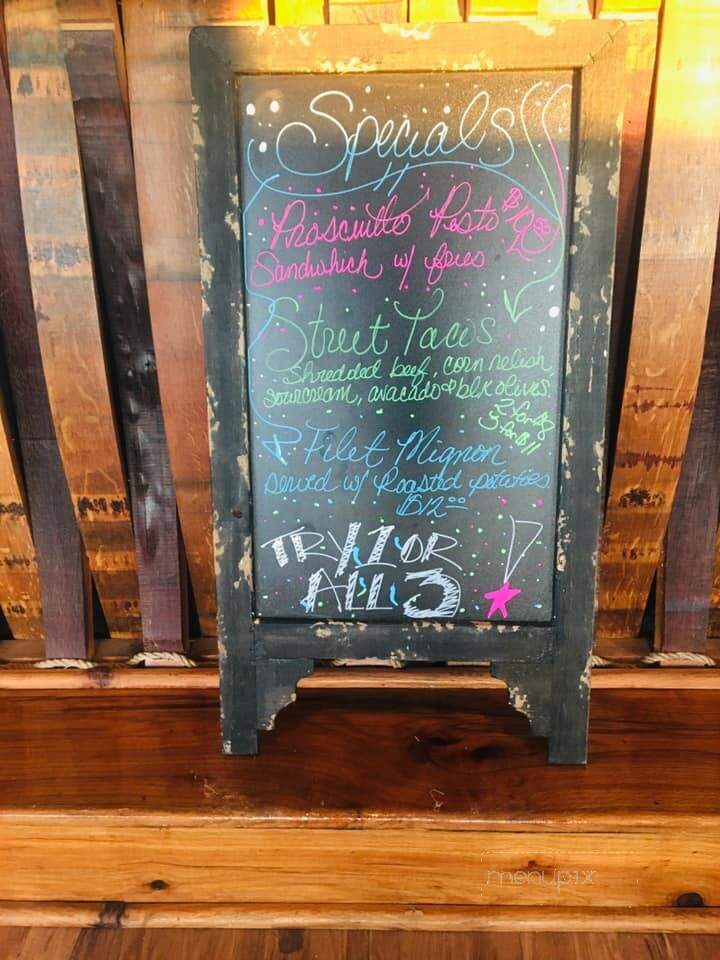 Specials
Proscuitto Pesto $10.50
Sandwhich w/ fries
Street Tacos
Shredded beef, corn relish,
sourcream, avacado & blk olives
2 for $8
3 for $11
Filet Mignon
served w/ Roasted potatoes
$12.00
TRY 1 OR
ALL 3 !
menupix